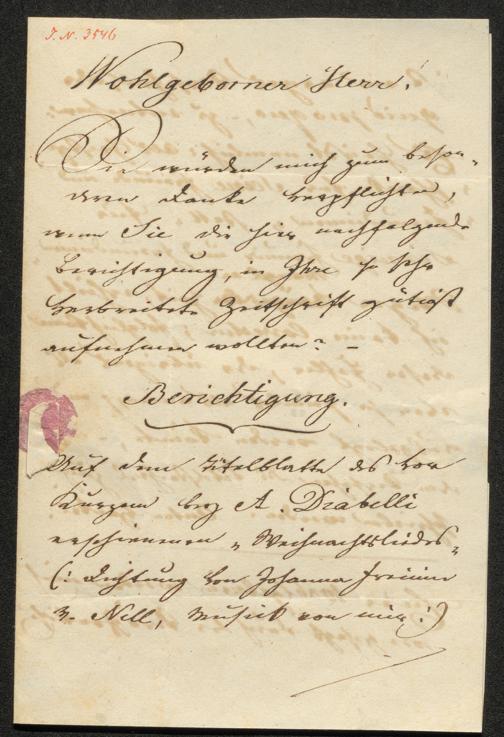 I. N. 3546
Wohlgeborner Herr!
Sie würden mich zum beson-
dern Danke verpflichten,
wenn Sie die hier nachfolgende
Berichtigung, in Ihre so sehr
verbreitete Zeitschrift gütigst
aufnehmen wollten? –
Berichtigung.
Auf dem Titelblatte des vor
Kurzem bey A. Diabelli
erschienenen „Weihnachtsliedes„
(: Dichtung von Johanna Freiinn
v. Nell, Musick von mir :)